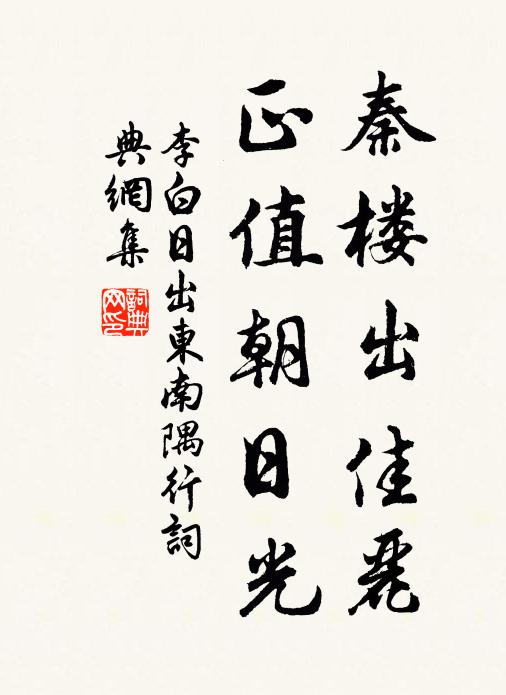 秦楼出佳麗
正值朝日光
李白日出東南隅行詞
典網集
詞典網印